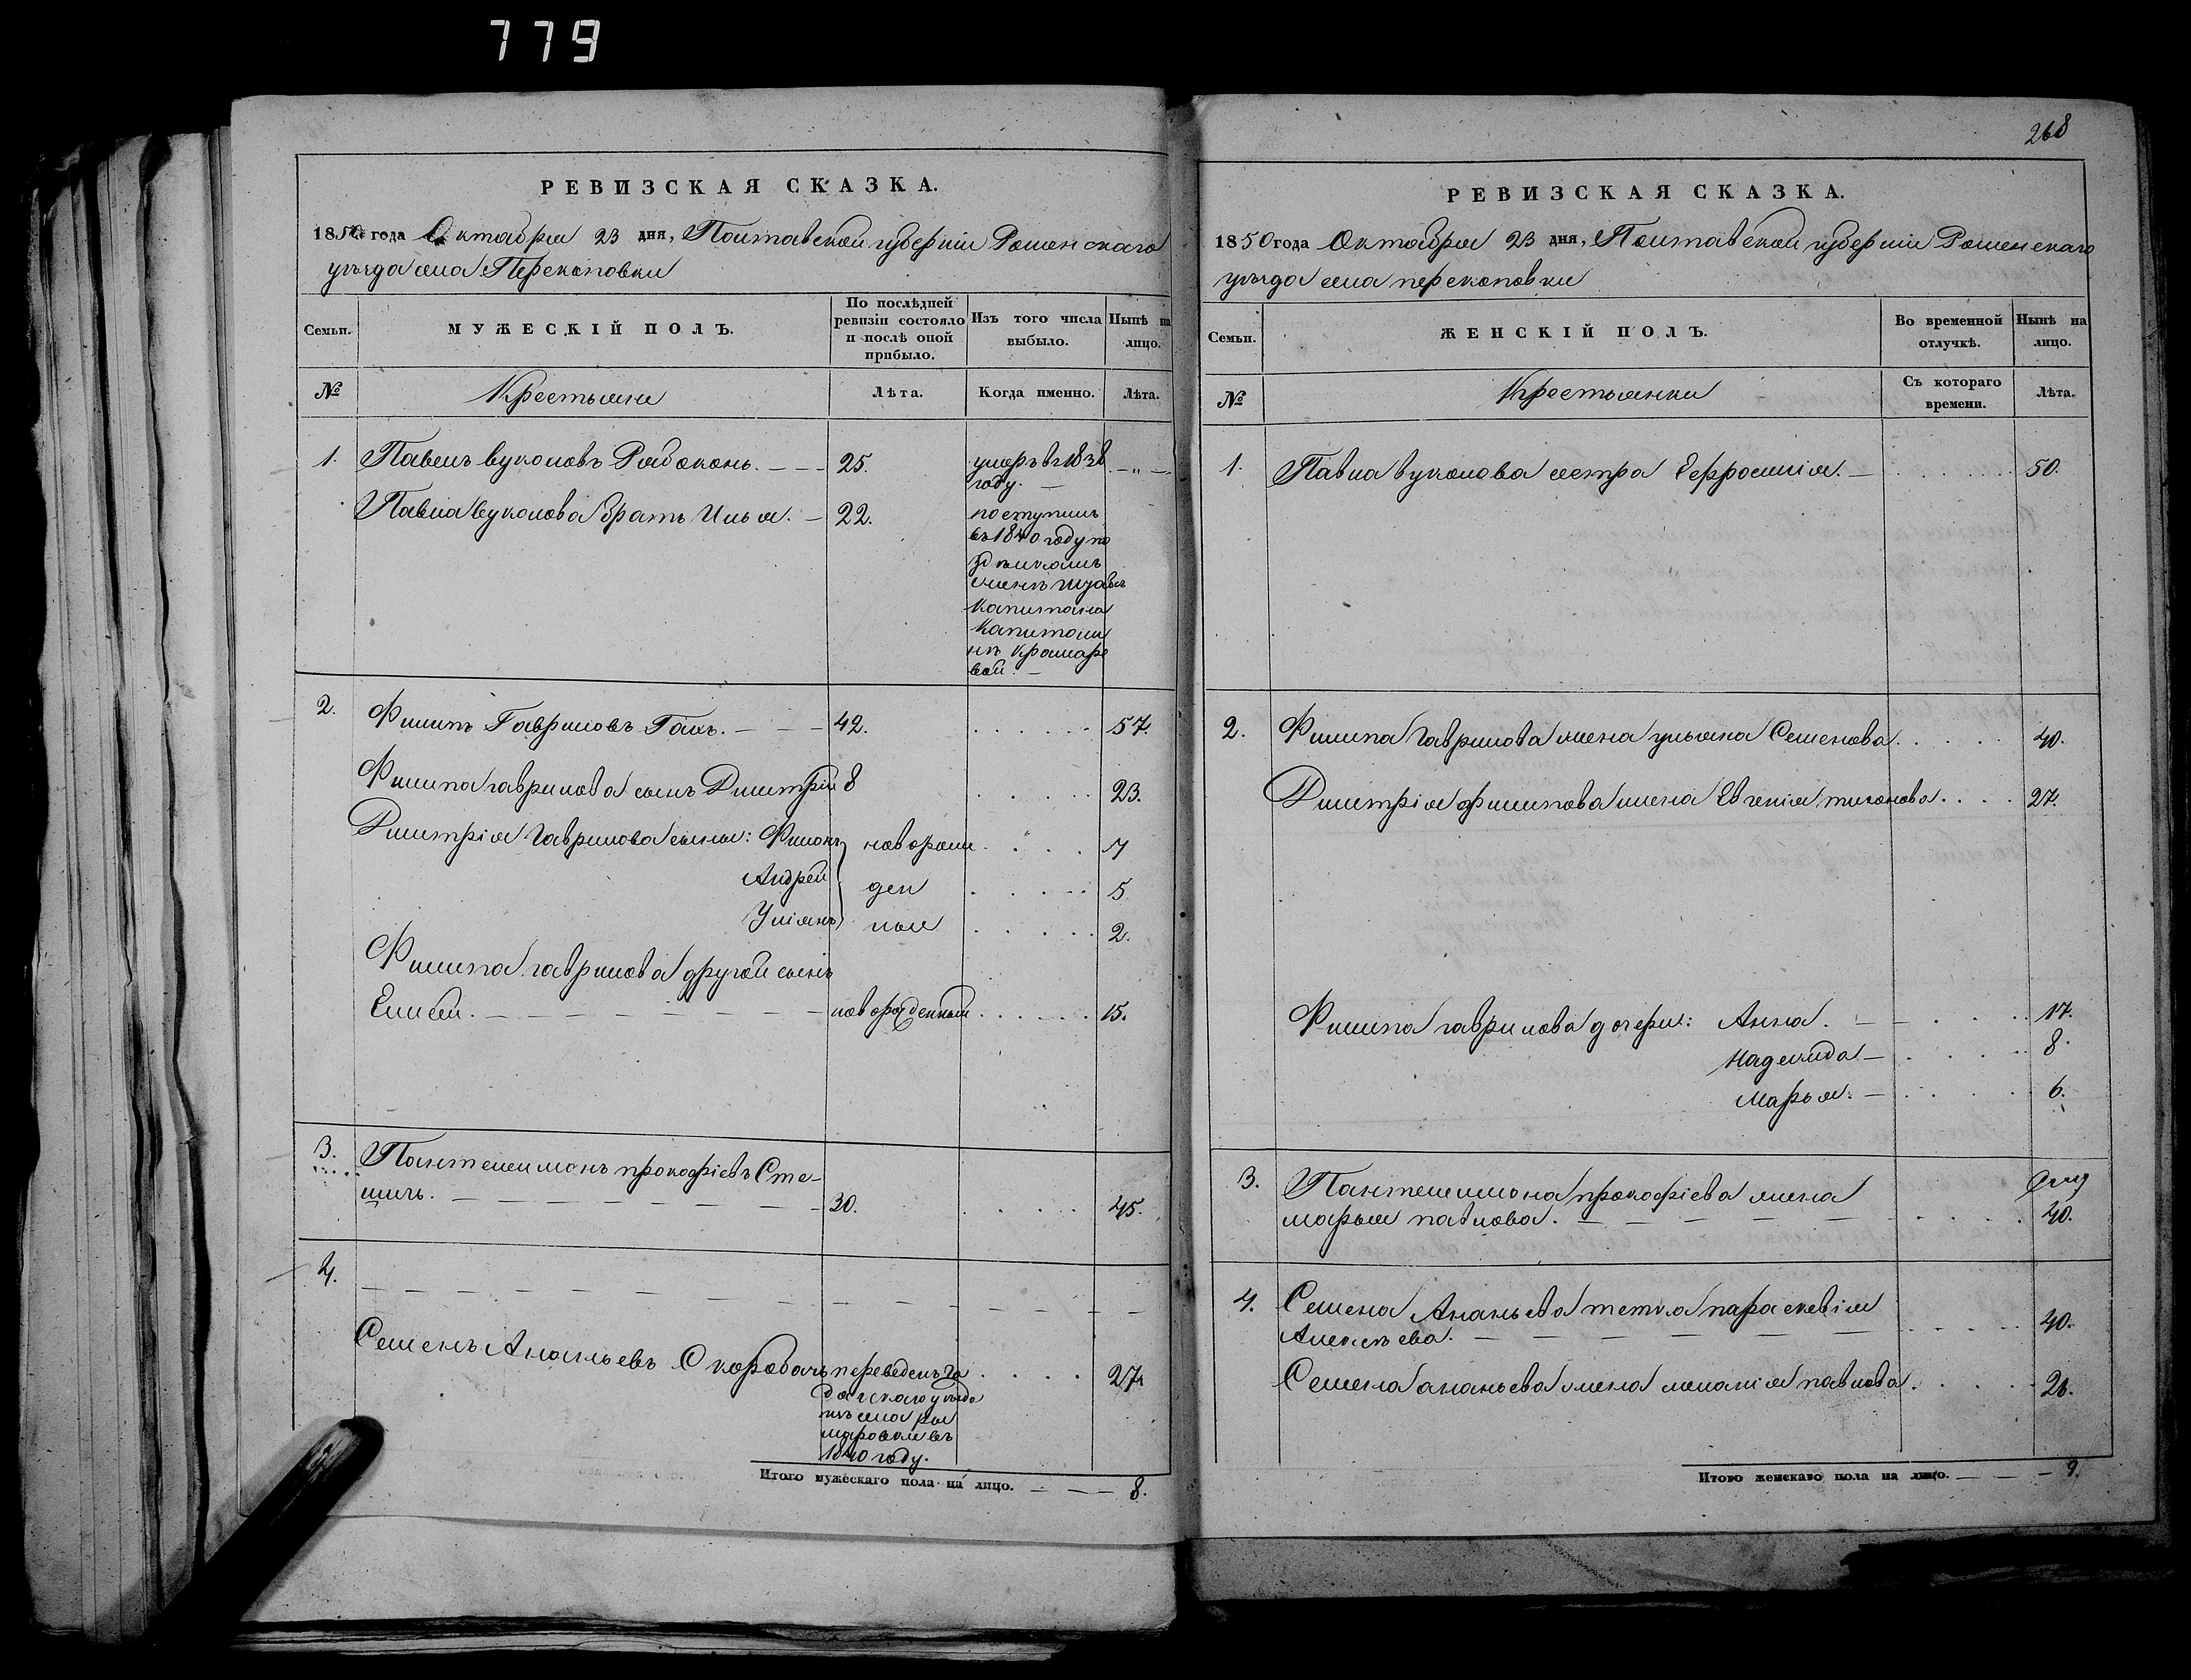 779
РЕВИЗСКАЯ СКАЗКА.
1850 года Октября 23 дня, Полтавской губерніи Роменскаго
уѣзда села Перекоповки
Семьи.
МУЖЕСКІЙ ПОЛЪ.
По послѣдней
ревизіи состояло
и послѣ оной
прибыло.
Изъ того числа
выбыло.
Нынѣ на
лицо.
№
Крестьяне
Лѣта.
Когда именно.
Лѣта.
1. Павелъ Вуколовъ Рябоконь. — — 25. умеръ в 1838 — „ —
году. —
Павла Вуколова братъ Илья. — 22. поступилъ
въ 1840 году по
женѣ штабсъ
капитана
Капитоли
нѣ Крамаре
вой. —
2. Филипъ Гавриловъ Гакъ. — — — 42. 57.
Филипа гаврилова сынъ Дмитрій 8 23.
Дмитрія Гаврилова сыны: Филонъ новорож 7
Андрей ден 5
Уліянъ ные 2.
Филипа гаврилова другой сынъ
Елисей. — новорожденный 15.
3. Пантелеимонъ прокофіевъ Сте-
— 30. 45.
4.
Семенъ Ананьевъ Скоробачъ переведенъ Га 27
дячскаго уѣзда
изъ села ры
маровки въ
1840 году.
Итого мужескаго пола на лицо. — — — 8.
268
РЕВИЗСКАЯ СКАЗКА.
1850 года Октября 23 дня, Полтавской губерніи Роменскаго
уѣзда села перекоповки
Семьи.
ЖЕНСКІЙ ПОЛЪ.
Во временной
отлучкѣ.
Нынѣ на
лицо.
№
Крестьянки
Съ котораго
времени.
Лѣта.
1. Павла вуколова сестра Ефросинія. — 50.
2. Филипа Гаврилова жена ульяна Семенова 40.
Дмитрія филипова жена Евгенія тихонова 27.
Филипа гаврилова дочери: Анна. — 17.
Надежда — 8.
Марья. — 6.
3. Пантелеимона прокофіева жена
марья павлова. — 40.
4. Семена Ананьева тетка параскевія
Алексѣева. — 40.
Семена ананьева жена меланія павлова 26.
Итого женскаго пола на лицо. — — — 9.